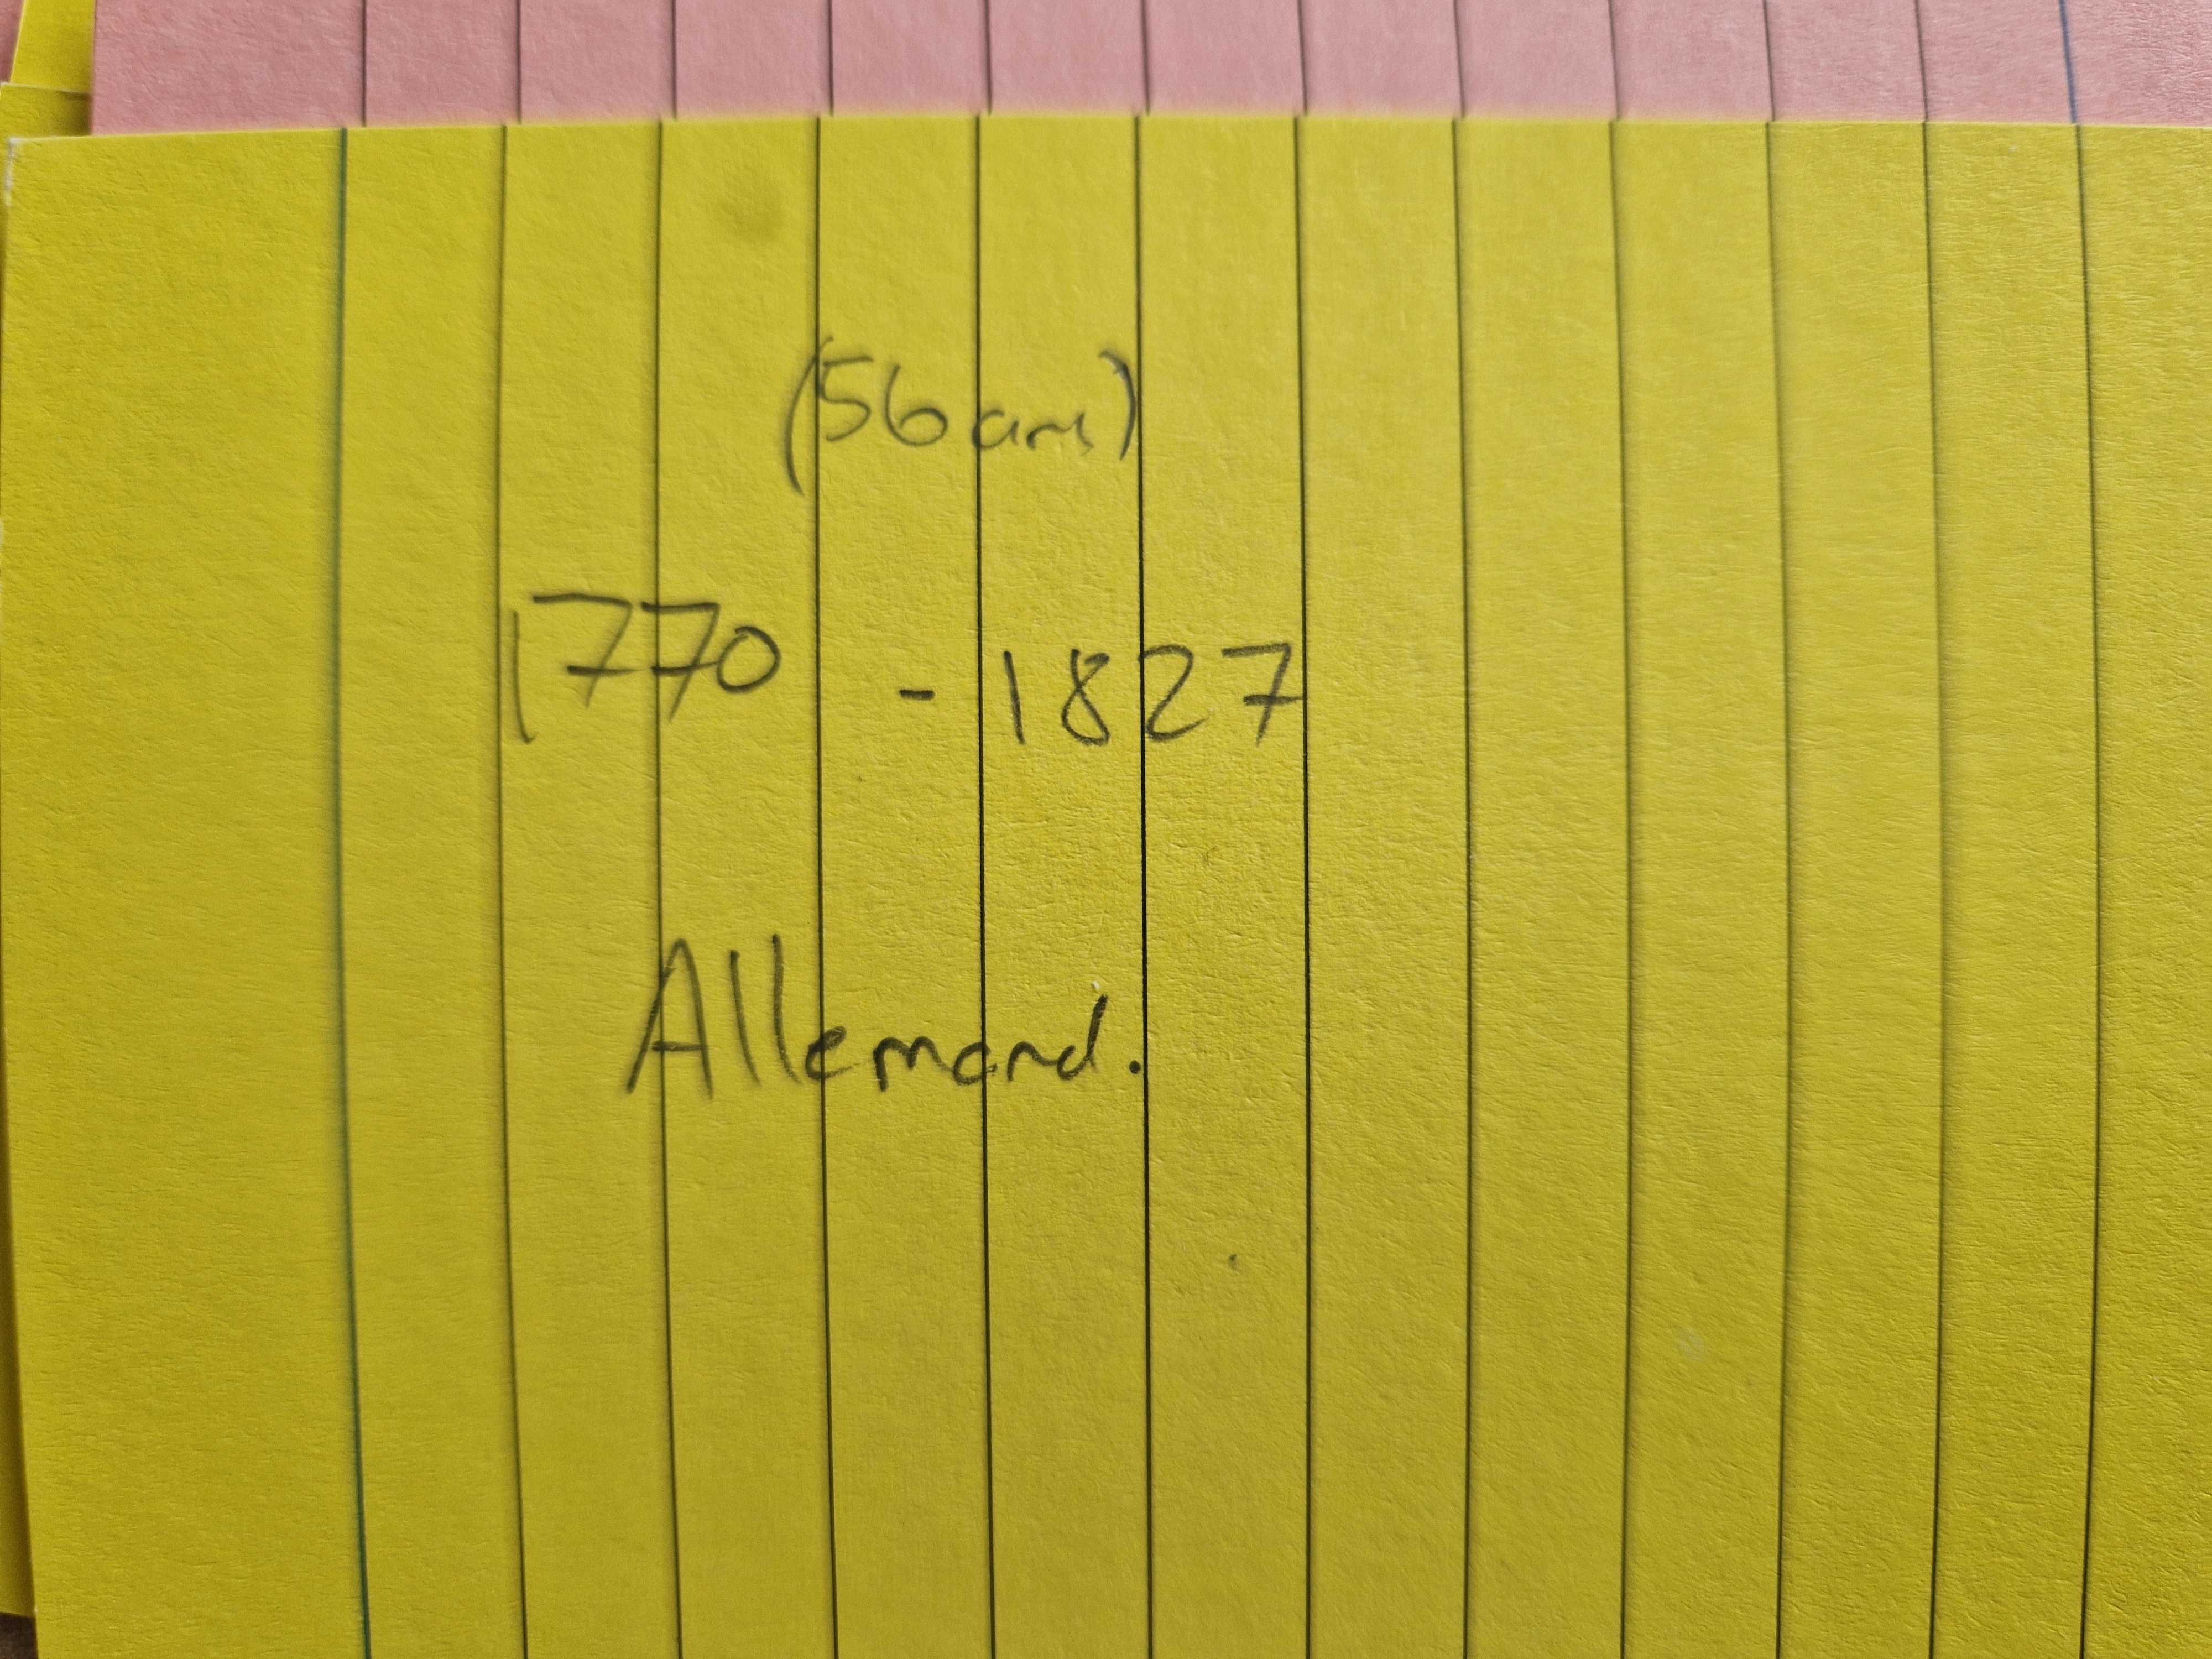 (56 ans)
1770 - 1827
Allemand.